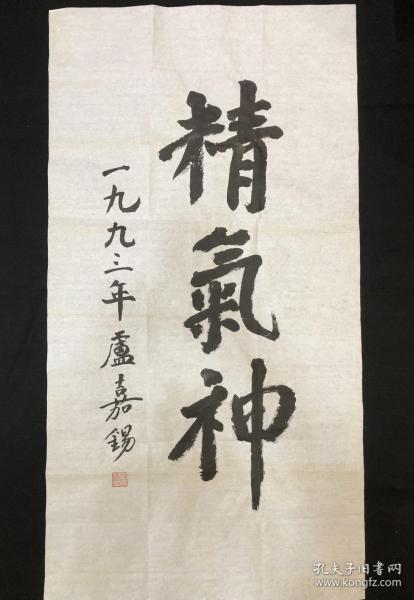 精氣神
一九九三年 盧嘉錫
孔夫子旧书网